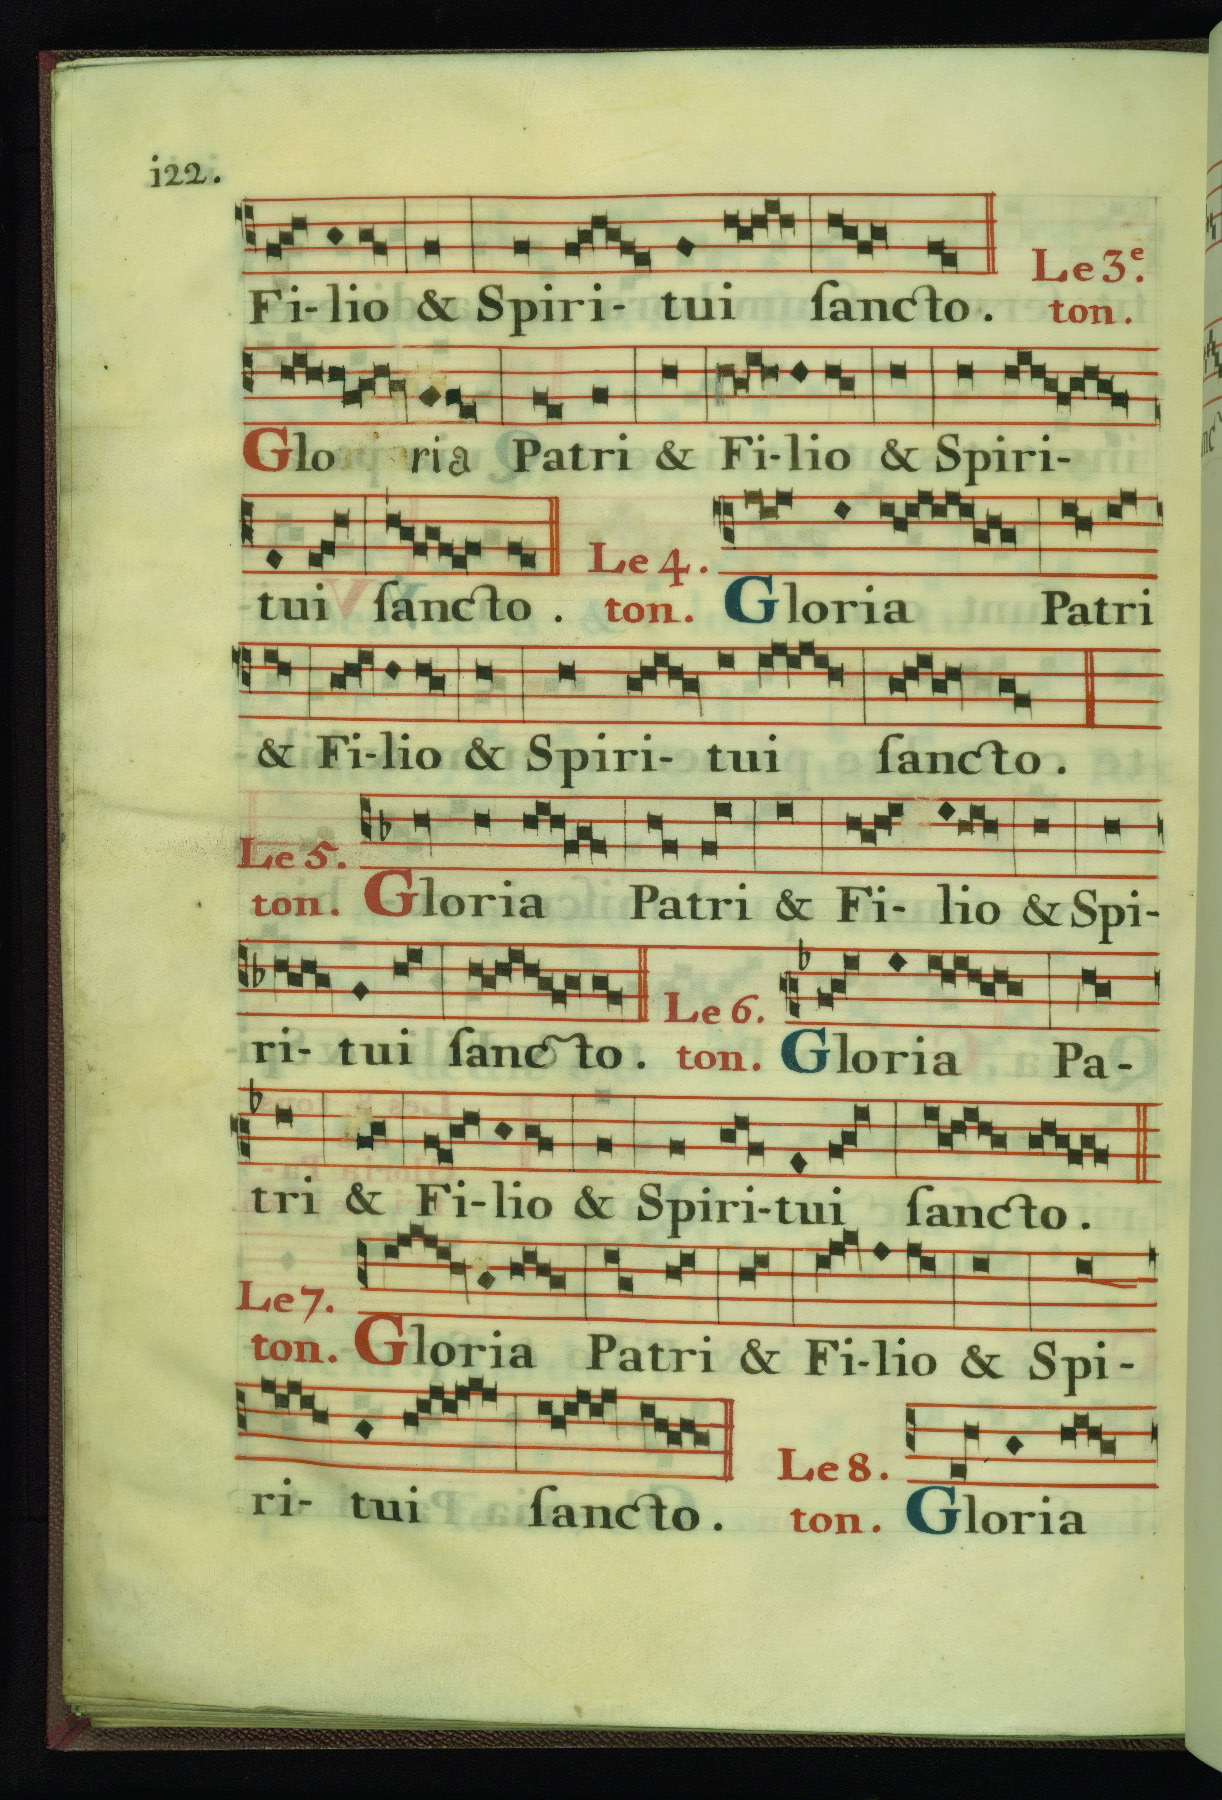 i22.
Fi-lio & Spiri- tui ſancto. Le 3e. ton.
Gloria Patri & Fi-lio & Spiri-
tui ſancto. Le 4. ton. Gloria Patri
& Fi-lio & Spiri- tui ſancto.
Le 5. ton. Gloria Patri & Fi- lio & Spi-
ri- tui ſancto. Le 6. ton. Gloria Pa-
tri & Fi-lio & Spiri-tui ſancto.
Le 7. ton. Gloria Patri & Fi-lio & Spi-
ri- tui ſancto. Le 8. ton. Gloria